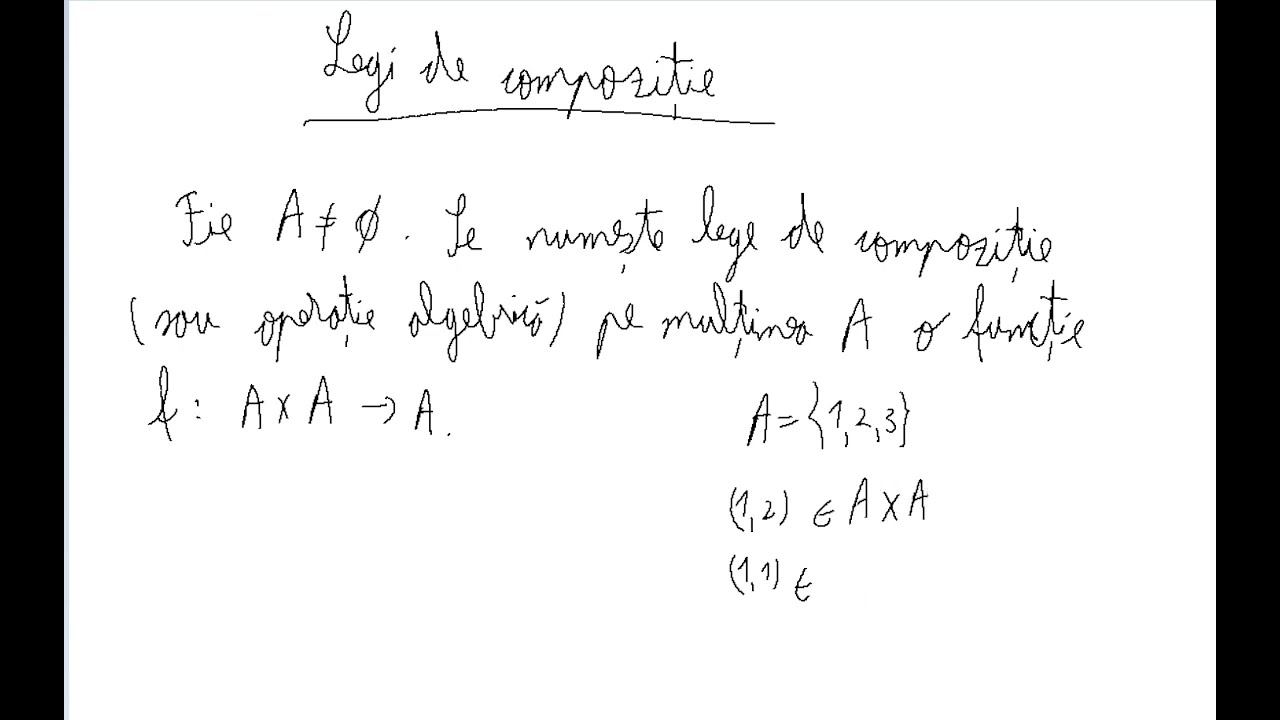 Legi de compoziție
Fie A ≠ ∅. Se numește lege de compoziție
(sau operație algebrică) pe mulțimea A o funcție
f: A × A → A.
A = {1, 2, 3}
(1, 2) ∈ A × A
(1, 1) ∈